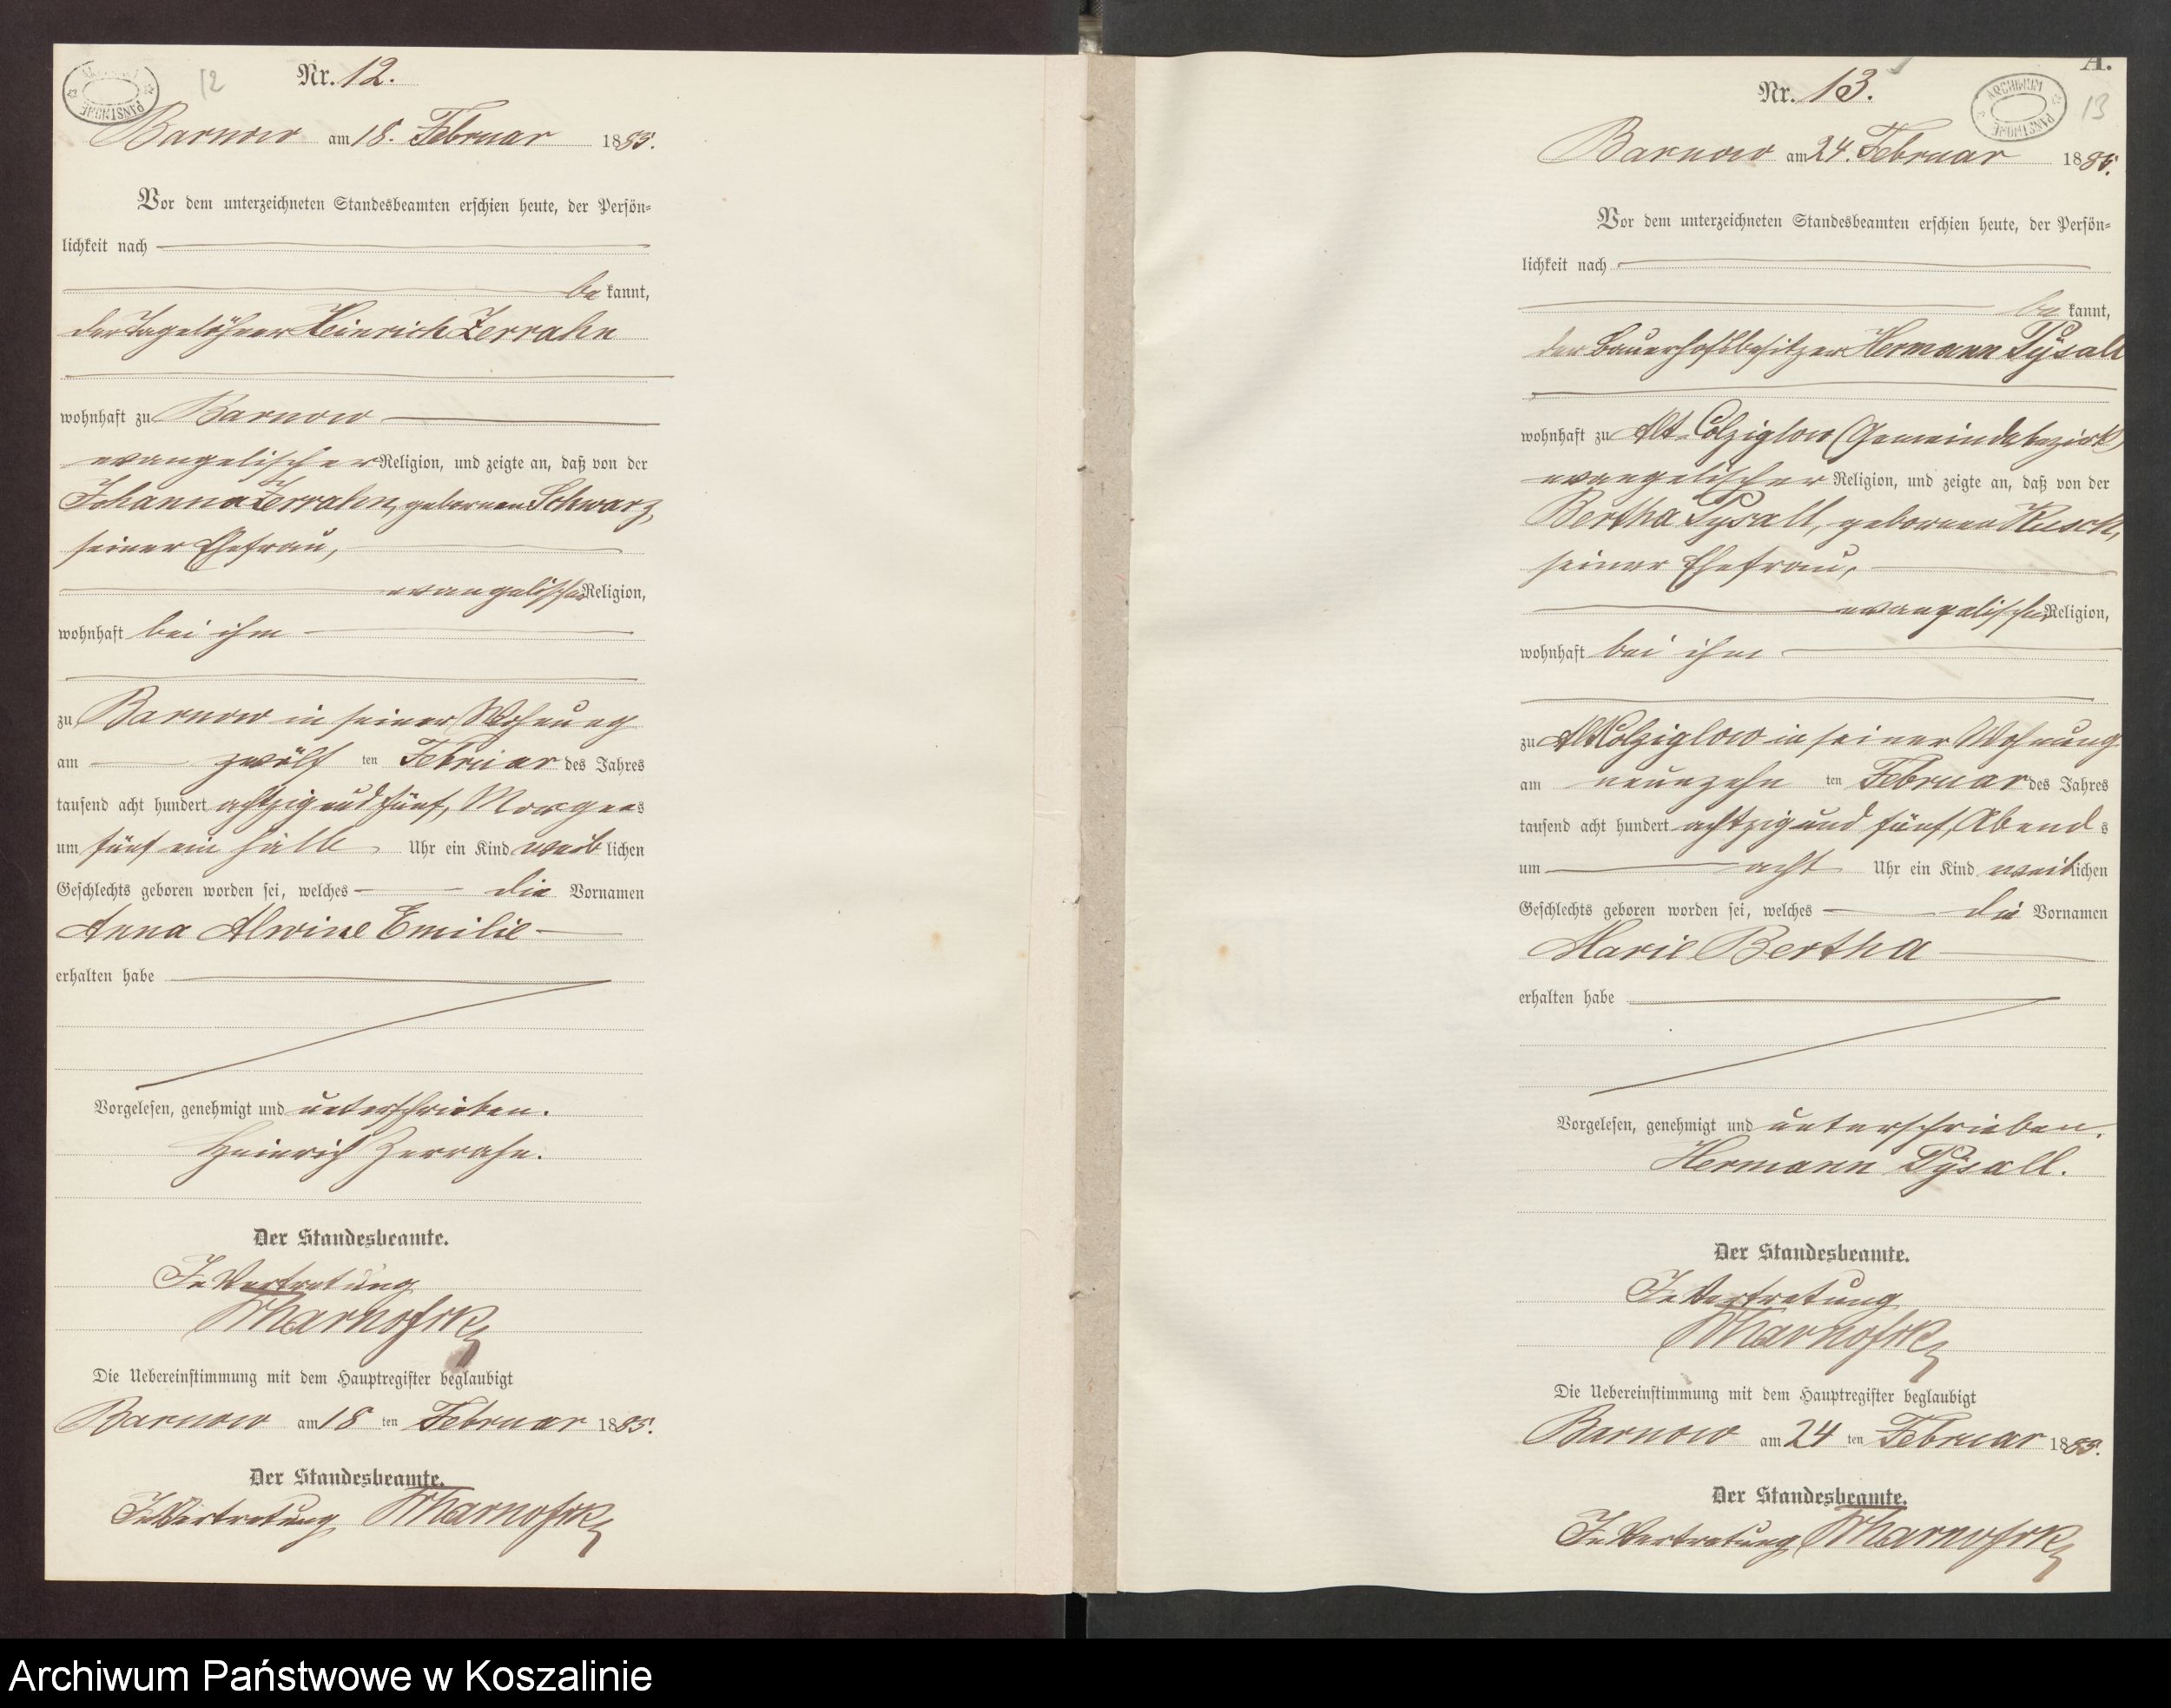 12
Nr. 12.
Barnow am 18. Februar 1885.
Vor dem unterzeichneten Standesbeamten erschien heute, der Persön=
lichkeit nach
be kannt,
der Tagelöhner Heinrich Zerrahn
wohnhaft zu Barnow
evangelischer Religion, und zeigte an, daß von der
Johanna Zerrahn, gebornen Schwarz,
seiner Ehefrau,
evangelischer Religion,
wohnhaft bei ihm
zu Barnow in seiner Wohnung
am zwölf ten Februar des Jahres
tausend acht hundert achtzig und fünf, Morgens
um fünf ein halb Uhr ein Kind weiblichen
Geschlechts geboren worden sei, welches die Vornamen
Anna Alwine Emilie
erhalten habe
Vorgelesen, genehmigt und unterschrieben.
Heinrich Zerrahn.
Der Standesbeamte.
In Vertretung
Die Uebereinstimmung mit dem Hauptregister beglaubigt
Barnow am 18 ten Februar 1885.
Der Standesbeamte.
In Vertretung
A.
ARCHIWUM PAŃSTWOWE
13
Nr. 13.
Barnow am 24. Februar 1885.
Vor dem unterzeichneten Standesbeamten erschien heute, der Persön=
lichkeit nach
be kannt,
der Bauerhofsbesitzer Hermann Pÿsall
wohnhaft zu Alt-Colziglow (Gemeindebezirk)
evangelischer Religion, und zeigte an, daß von der
Bertha Pysall, gebornen Kusch,
seiner Ehefrau,
evangelischer Religion,
wohnhaft bei ihm
zu Alt Colziglow in seiner Wohnung
am neunzehn ten Februar des Jahres
tausend acht hundert achtzig und fünf, Abends
um acht Uhr ein Kind weiblichen
Geschlechts geboren worden sei, welches die Vornamen
Marie Bertha
erhalten habe
Vorgelesen, genehmigt und unterschrieben.
Hermann Pÿsall.
Der Standesbeamte.
In Vertretung
Die Uebereinstimmung mit dem Hauptregister beglaubigt
Barnow am 24 ten Februar 1885.
Der Standesbeamte.
In Vertretung
Archiwum Państwowe w Koszalinie